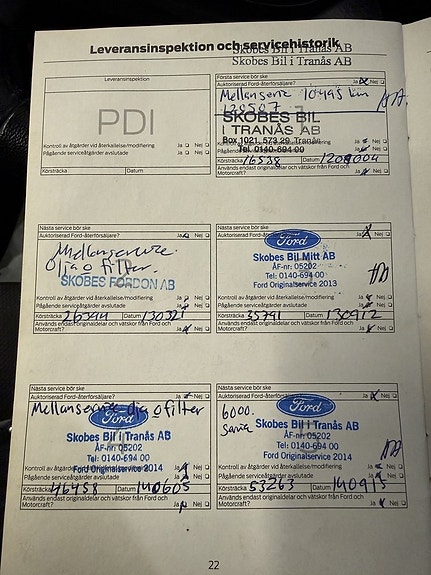 Leveransinspektion och servicehistorik
Skobes Bil i Tranås AB
Skobes Bil i Tranås AB
Leveransinspektion
PDI
Kontroll av åtgärder vid återkallelse/modifiering Ja Nej
Pågående serviceåtgärder avslutade Ja Nej
Körsträcka Datum
Första service bör ske
Auktoriserad Ford-återförsäljare? Ja Nej
Mellanservice 10495 km
120507
SKOBES BIL
I TRANÅS AB
Box 1021, 573 29 Tranås
Tel. 0140-694 00
Ja Nej
Ja Nej
Körsträcka 16538 Datum 121004
Används endast originaldelar och vätskor från Ford och
Motorcraft? Ja Nej
Nästa service bör ske
Auktoriserad Ford-återförsäljare? Ja Nej
Mellanservice.
Olja o filter.
SKOBES FORDON AB
Kontroll av åtgärder vid återkallelse/modifiering Ja Nej
Pågående serviceåtgärder avslutade Ja Nej
Körsträcka 26344 Datum 130321
Används endast originaldelar och vätskor från Ford och
Motorcraft? Ja Nej
Nästa service bör ske
Auktoriserad Ford-återförsäljare? Ja Nej
Ford
Skobes Bil Mitt AB
ÅF-nr: 05202
Tel: 0140-694 00
Ford Originalservice 2013
Kontroll av åtgärder vid återkallelse/modifiering Ja Nej
Pågående serviceåtgärder avslutade Ja Nej
Körsträcka 35791 Datum 130912
Används endast originaldelar och vätskor från Ford och
Motorcraft? Ja Nej
Nästa service bör ske
Auktoriserad Ford-återförsäljare? Ja Nej
Mellanservice olja o filter
Ford
Skobes Bil i Tranås AB
ÅF-nr: 05202
Tel: 0140-694 00
Ford Originalservice 2014
Kontroll av åtgärder vid återkallelse/modifiering Ja Nej
Pågående serviceåtgärder avslutade Ja Nej
Körsträcka 46458 Datum 140605
Används endast originaldelar och vätskor från Ford och
Motorcraft? Ja Nej
Nästa service bör ske
Auktoriserad Ford-återförsäljare? Ja Nej
6000.
Ford
Skobes Bil i Tranås AB
ÅF-nr: 05202
Tel: 0140-694 00
Ford Originalservice 2014
Kontroll av åtgärder vid återkallelse/modifiering Ja Nej
Pågående serviceåtgärder avslutade Ja Nej
Körsträcka 53263 Datum
Används endast originaldelar och vätskor från Ford och
Motorcraft? Ja Nej
22